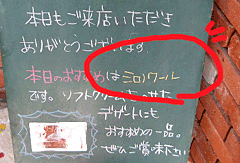 本日もご来店いただき
ありがとうございます。
本日のおすすめはミロワール
です。ソフトクリームをのせた
デザートにも
おすすめの一品。
ぜひご賞味下さい